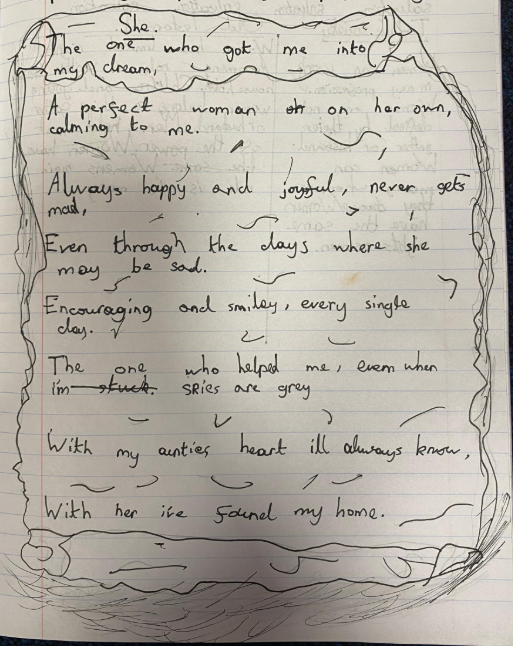 She
The one who got me into
my dream,
A perfect woman on on her own,
calming to me.
Always happy and joyful, never gets
mad,
Even through the days where she
may be sad.
Encouraging and smiley, every single
day.
The one who helped me, even when
i'm stuck. skies are grey
With my aunties heart ill always know,
With her ive found my home.